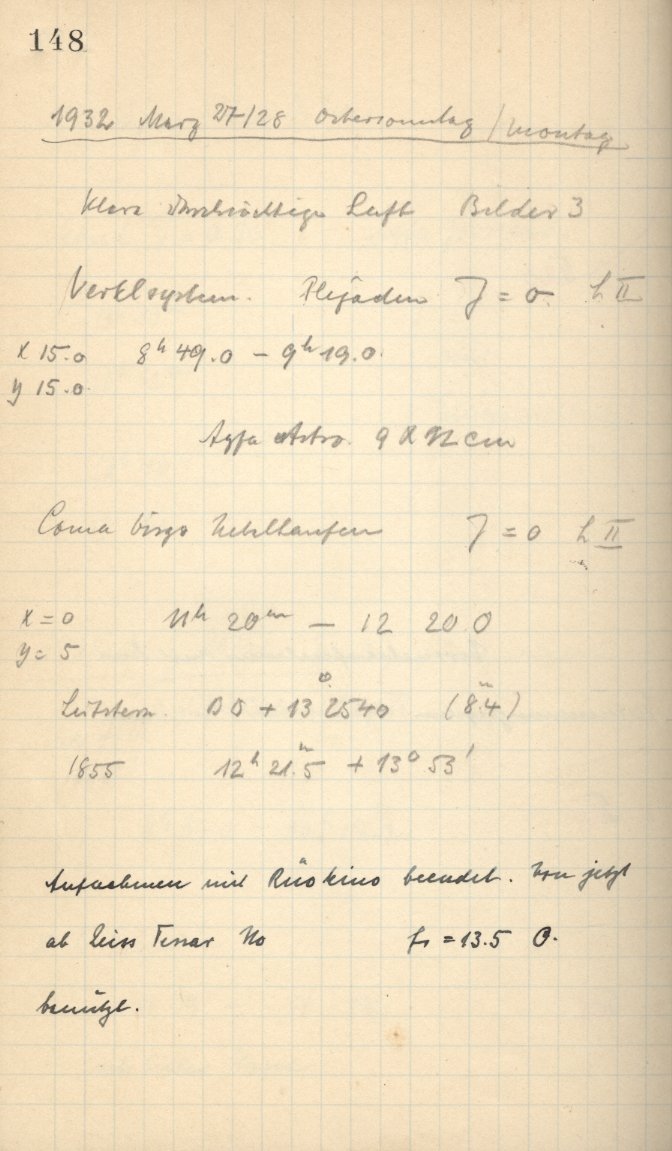 148
1932 März 27/28 Ostersonntag / montag
Klare durchsichtige Luft Bilder 3
Plejaden J = 0. L II
x 15.0 8h 49.0 – 9h 19.0.
y 15.0.
Agfa Astro. 9 x 12 cm
Coma Virgo Nebelhaufen J = 0 L II
x = 0 11h 20m — 12 20 0
y = 5
Leitstern. BD + 13° 2540 (8m.4)
1855 12h 21m.5 + 13° 53'
Aufnahmen mit Rüo kino beendet. Von jetzt
ab Zeiss Tessar No = 13.5 C.
benützt.